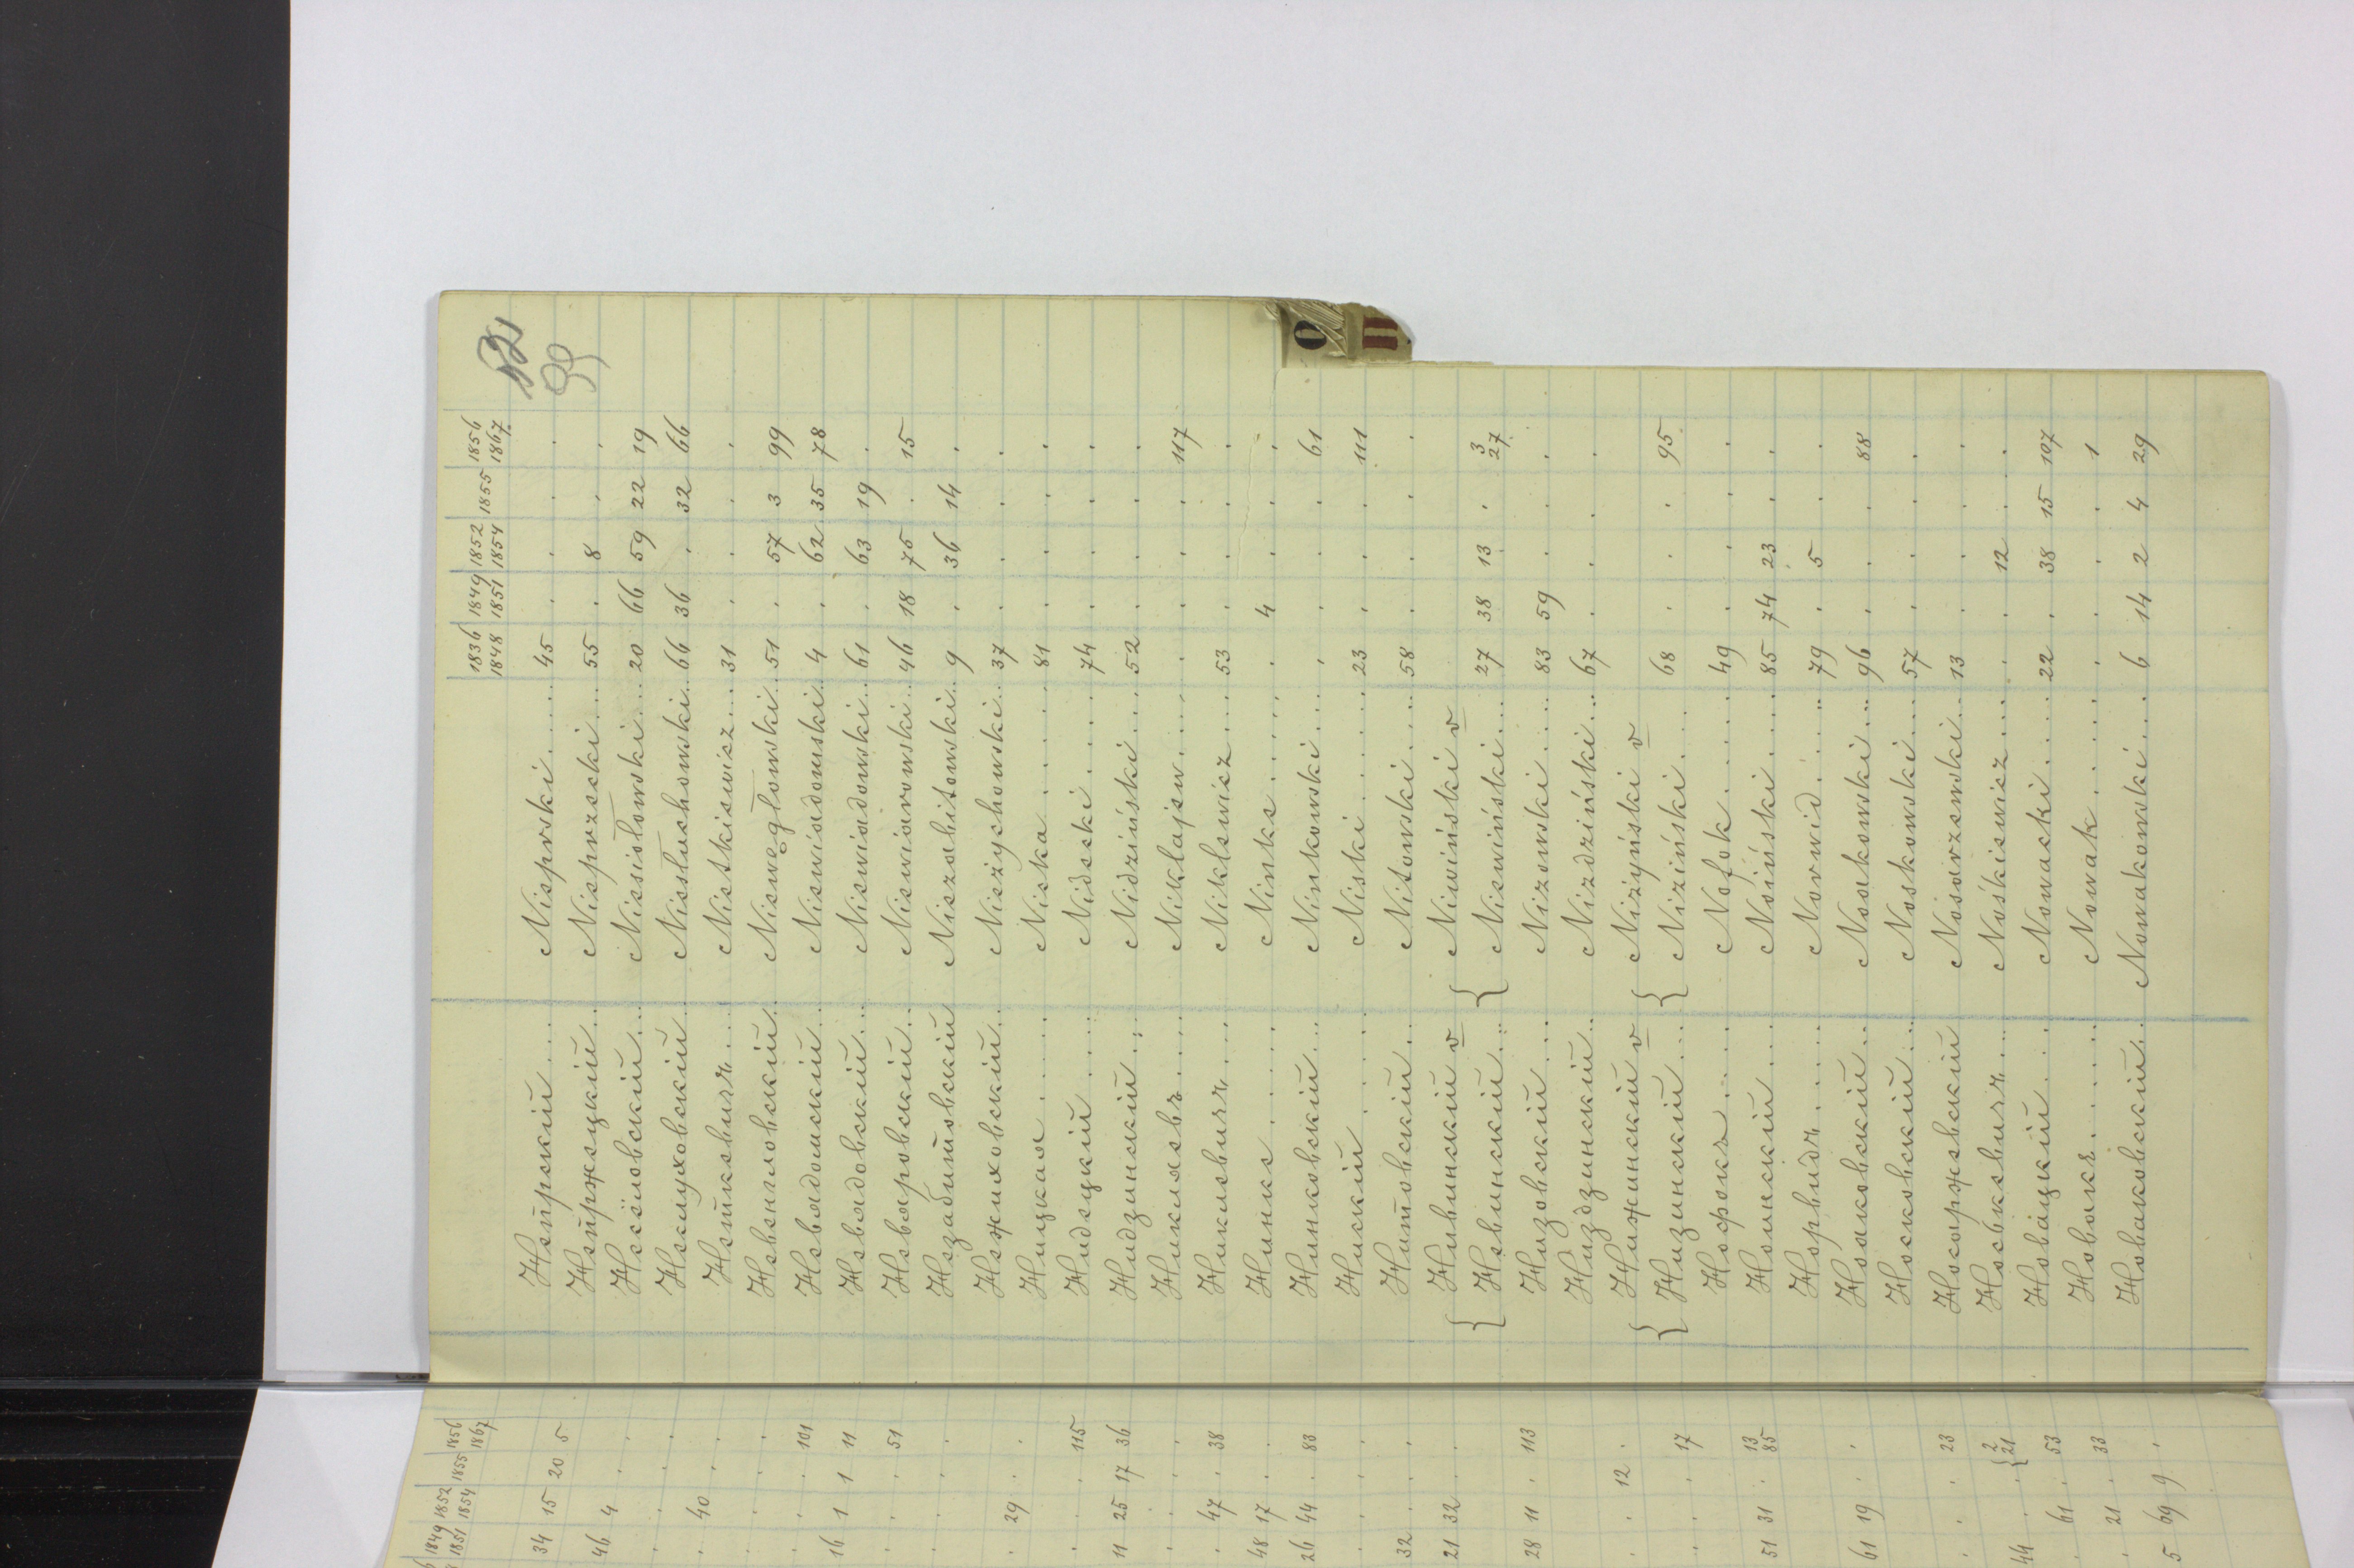 52
99
1836 1848 | 1849 1851 | 1852 1854 | 1855 | 1856 1867
Нейрскій.... Nieprski.... 45 . . . .
Нейржецкій... Nieprzecki... 55 . 8 . .
Несёловскій... Niesiołowski... 20 66 59 22 19
Неслуховскій.. Niesłuchowski.. 66 36 . 32 66
Неткевичъ.... Nietkiewicz... 31 . . . .
Невенгловскій.. Niewęgłowski.. 51 . 57 3 99
Невядомскій... Niewiadomski.. 4 . 62 35 78
Невядовскій... Niewiadowski.. 61 . 63 19 .
Невяровскій... Niewiarowski.. 46 18 75 . 15
Незабитовскій Niezabitowski.. 9 . 36 14 .
Нежиховскій.. Nieżychowski.. 37 . . . .
Ницкая..... Nicka...... 81 . . . .
Нидецкій.... Nidecki.... 74 . . . .
Нидзинскій... Nidziński... 52 . . . .
Никлаевъ.... Nikłajew.... . . . . 117
Никлевичъ.... Niklewicz... 53 . . . .
Нинке..... Ninke..... . 4 . . .
Нинковскій... Ninkowski... . . . . 61
Нискій..... Niski..... 23 . . . 111
Нитовскій... Nitowski... 58 . . . .
{ Нивинскій v { Niwiński v
Невинскій... Niewiński... 27 38 13 . 3 27
Низовскій... Nizowski.... 83 59 . . .
Низдзинскій.. Nizdziński... 67 . . . .
{ Нижинскій v { Niżyński v
Низинскій... Niziński... 68 . . . 95
Нофокъ..... Nofok..... 49 . . . .
Ноинскій.... Noiński.... 85 74 23 . .
Норвидъ..... Norwid..... 79 . 5 . .
Ноаковскій.. Noakowski... 96 . . . 88
Носковскій... Noskowski... 57 . . . .
Носаржевскій Nosarzewski.. 13 . . . .
Носькевичъ... Nośkiewicz... . . 12 . .
Новацкій.... Nowacki.... 22 . 38 15 107
Новакъ..... Nowak..... . . . . 1
Новаковскій.. Nowakowski... 6 14 2 4 29
O
П
1849 1851 | 1852 1854 | 1855 | 1856 1867
34 15 20 5
46 4 . .
. . . .
. 40 . .
. . . .
. . . 101
16 1 1 11
. . . 51
. . . .
. 29 . .
. . . 115
11 25 17 36
. . . .
. 47 . 38
48 17 . .
26 44 . 83
. . . .
32 . . .
21 32 . .
28 11 . 113
. . 12 .
. . . 17
51 31 . 13 85
61 19 . .
. . . 23
44 . . { 2 21
. 61 . 53
. 21 . 33
5 69 9 .